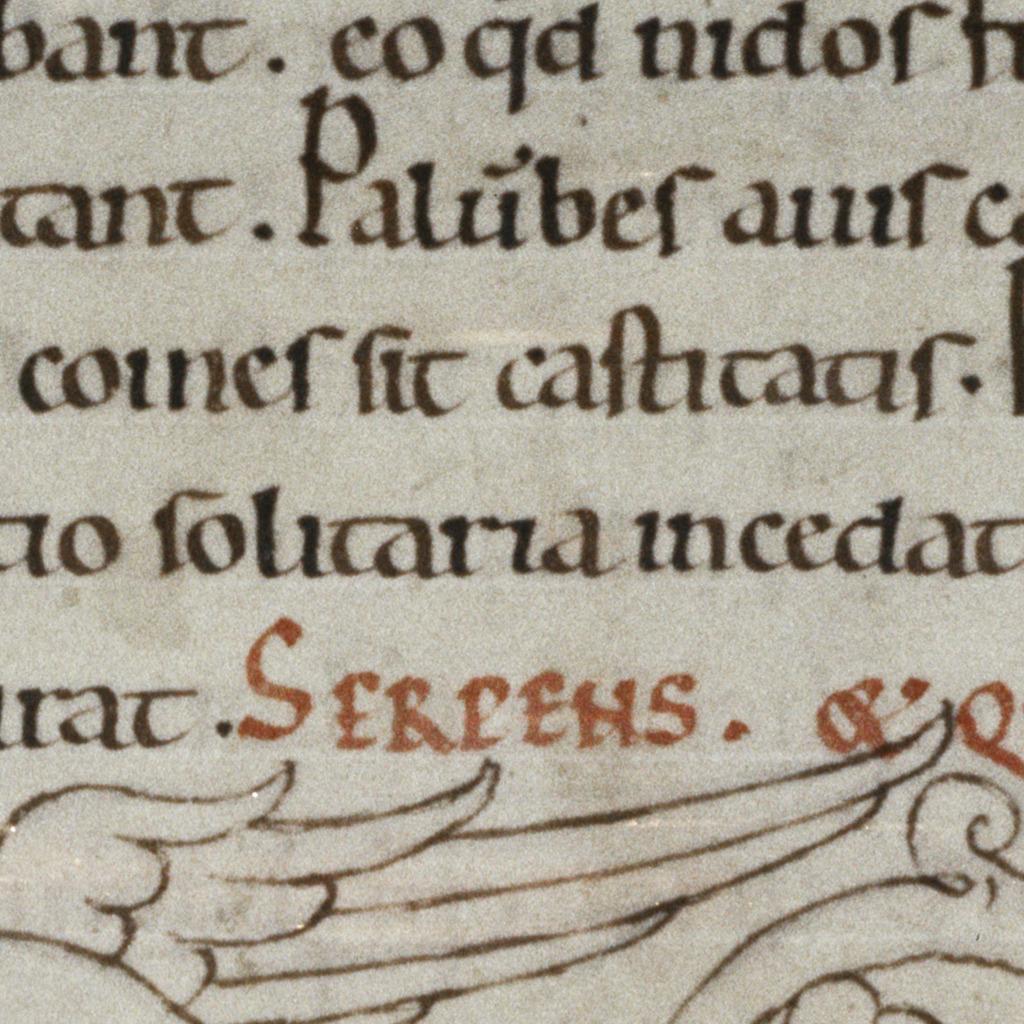 bant . eo qd nidoſ
tant . Palūbeſ auiſ
comeſ ſit caſtitatiſ .
tio ſolitaria incedat
urat . SERPENS . &